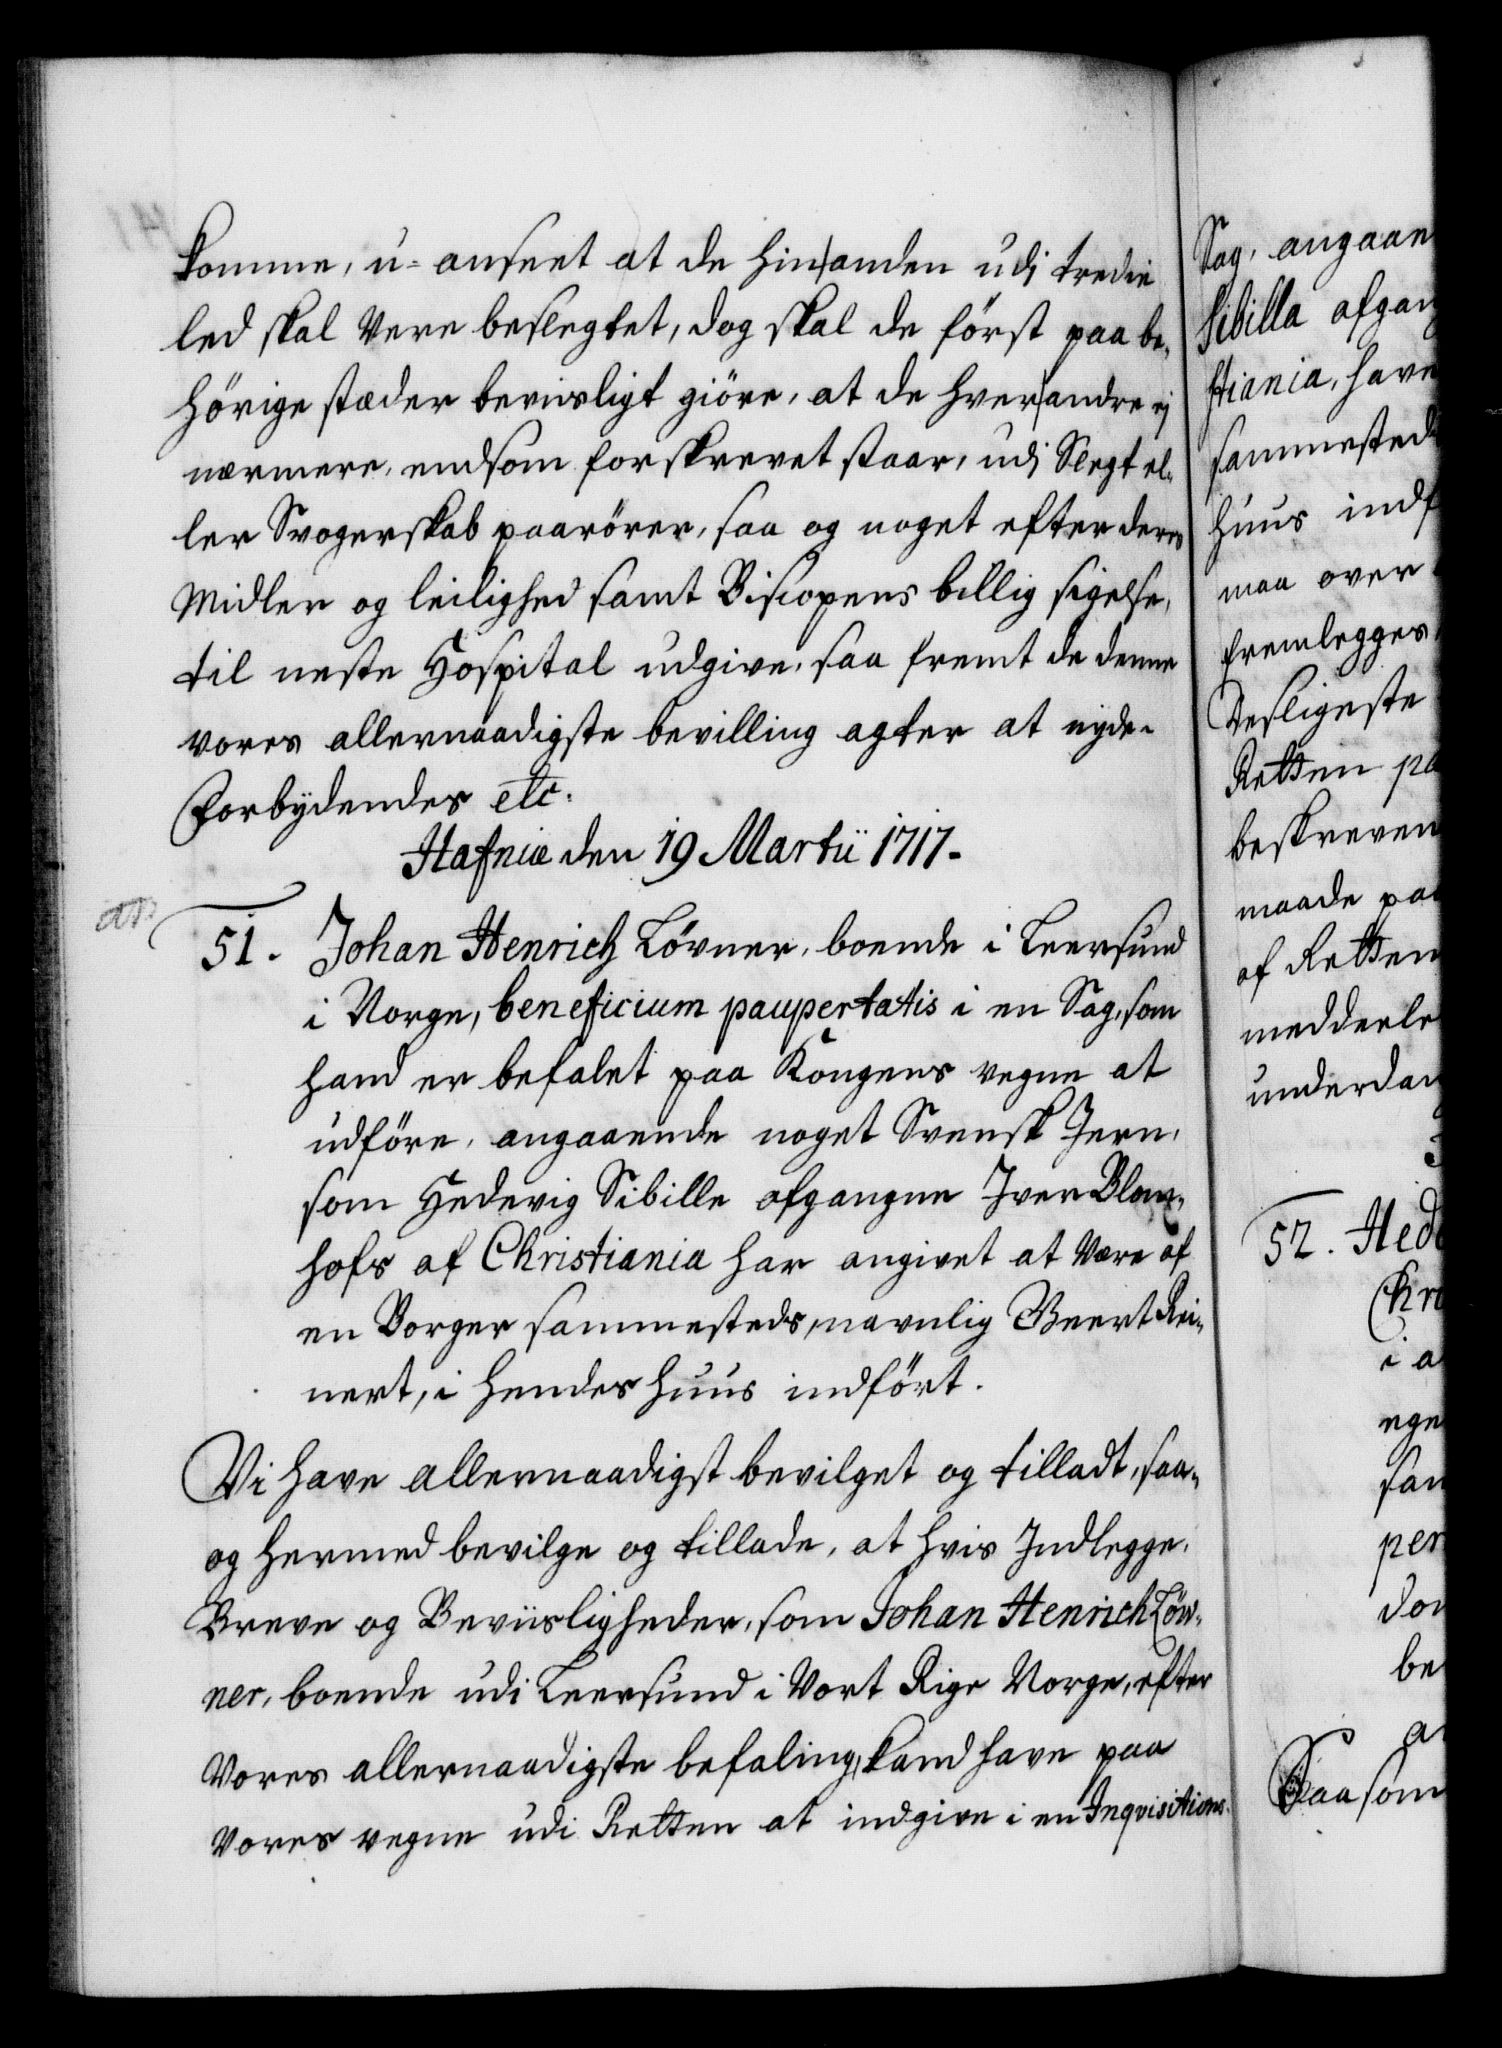 komme, u-anseet at de hinanden udj tredie
led skal Vere beslegtet, dog skal de först paa be-
hörige stæder beviisligt giöre, at de hverandre ej
nærmere, endsom forskrevet staar, udj Slegt el-
ler Svogerskab paarörer, saa og noget efter deres
Midler og leilighed samt Biscopens billig sigelse,
til neste Hospital udgive, saa fremt de denne
vores allernaadigste bevilling agter at nyde.
Forbydendes etc.
Hafniæ den 19 Martii 1717.
51. Johan Henrich Lövner, boende i Leersund
i Norge, beneficium paupertatis i en Sag, som
hand er befalet paa Kongens vegne at
udföre, angaaende noget Svensk Jern,
som Hedevig Sibille afgangne Iver Blom-
hofs af Christiania har angivet at Være af
en Borger sammesteds, navnlig Geert Rei-
nert, i hendes huus indfört.
Vi have allernaadigst bevilget og tilladt, saa-
og hermed bevilge og tillade, at hvis Indlegge,
Breve og Beviisligheder, som Johan Henrich Löw-
ner, boende udi Leersund i Vort Rige Norge, efter
Vores allernaadigste befaling, kand have paa
Vores vegne udi Retten at indgive i en Inqvisitions-
Sag, angaan
Sibilla afgang
stiania, have
sammested
huus indf
maa over
fremlegges
Desligeste
Retten pa
beskreven
maade paa
af Retten
meddeele
underdan
52. Hede
Chri
i a
ege
sam
per
don
be
a
Saasom